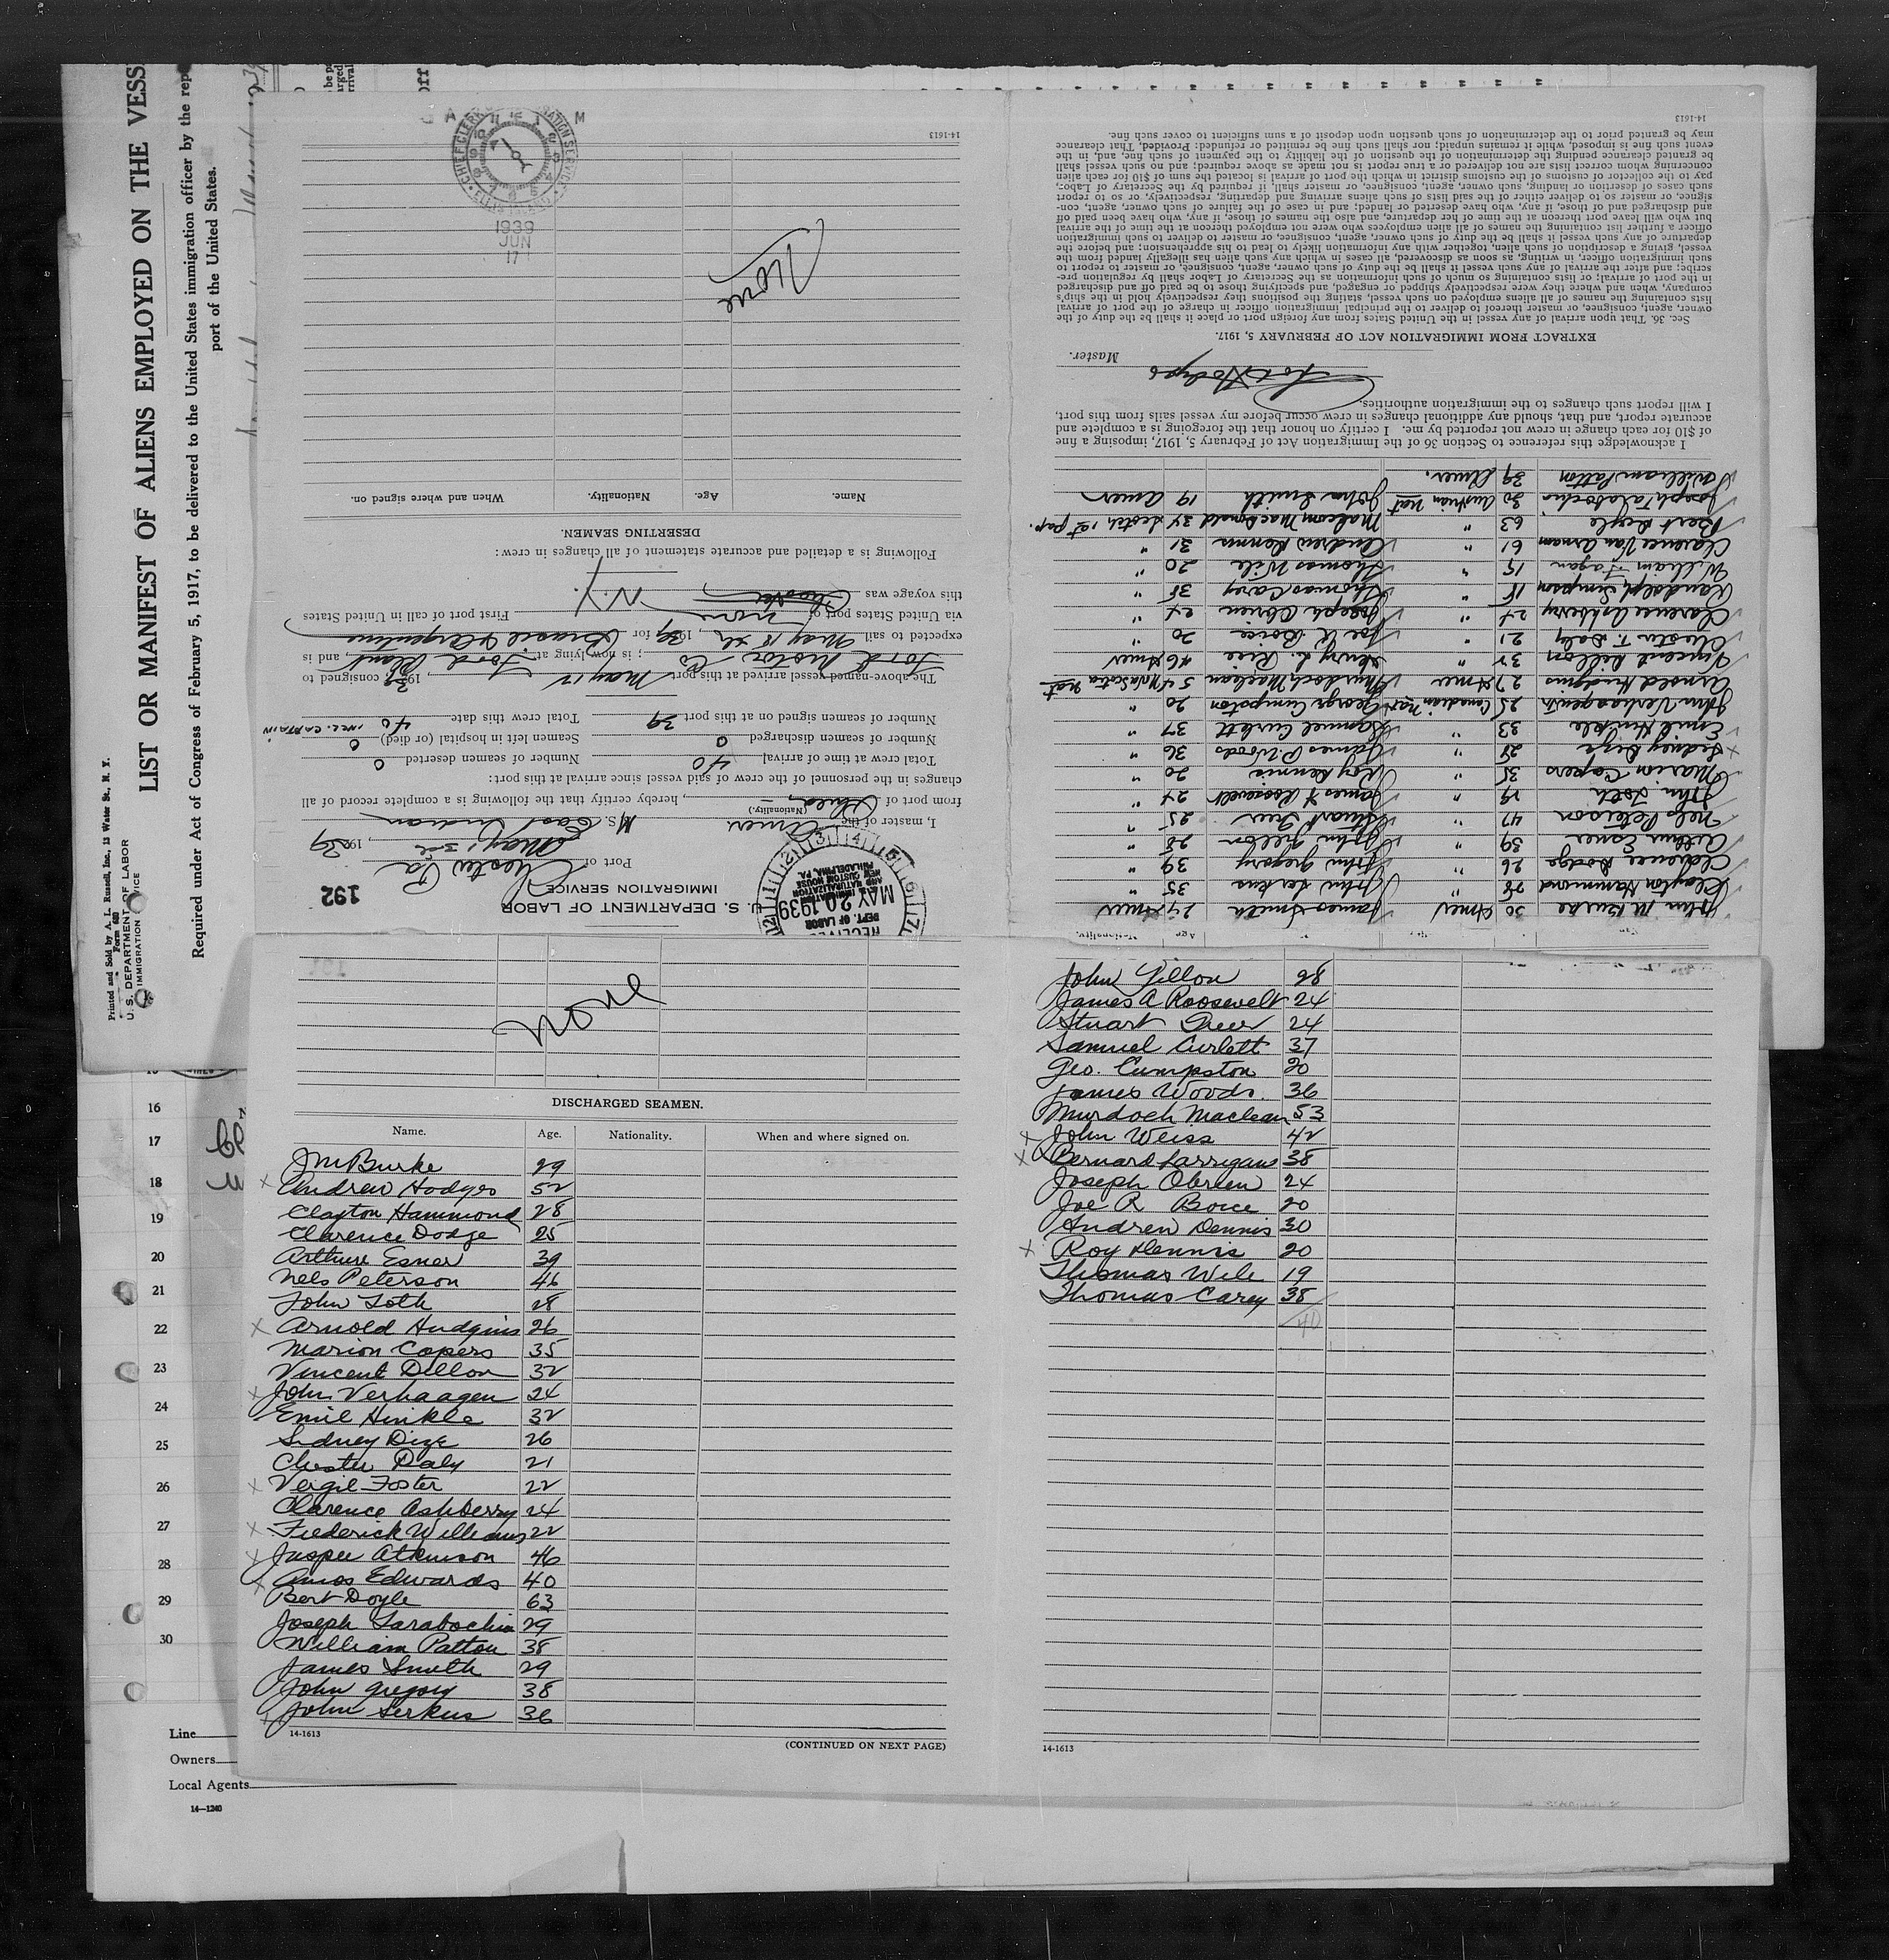 LIST OR MANIFEST OF ALIENS EMPLOYED ON THE VESS
Required under Act of Congress of February 5, 1917, to be delivered to the United States immigration officer by the rep
port of the United States.
Printed and Sold by A. L. Russell, Inc., 13 Water St., N. Y.
Form 680
U. S. DEPARTMENT OF LABOR
IMMIGRATION SERVICE
U. S. DEPARTMENT OF LABOR
IMMIGRATION SERVICE
192
MAY 20 1939
Port of Chester Pa
May 1939
I, master of the Amer M/S. East Indian
(Nationality.)
from port of , hereby certify that the following is a complete record of all
changes in the personnel of the crew of said vessel since arrival at this port:
Total crew at time of arrival 40 Number of seamen deserted 0
Number of seamen discharged 0 Seamen left in hospital (or died) 0
Number of seamen signed on at this port 39 Total crew this date 40 INCL. CAPTAIN
The above-named vessel arrived at this port May 12, 1939 consigned to
Ford Motor Co ; is now lying at Ford Plant, and is
expected to sail May 18th, 1939 for Brazil & Argentine
via United States port of none First port of call in United States
this voyage was Chester N.Y.
Following is a detailed and accurate statement of all changes in crew:
DESERTING SEAMEN.
Name. Age. Nationality. When and where signed on.
None
1939
JUN
17
14-1613
John M. Burke 30 Amer
Clayton Hammond 28 "
Clarence Dodge 26 "
Arthur Esner 39 "
Nels Peterson 47 "
John Toth 29 "
Marion Capers 35 "
Sidney Dize 28 "
Emil Hinkle 33 "
John Verhaagen 25 Canadian Nat
Arnold Hudgins 27 Amer
Vincent Dillon 32 "
Chester T. Daly 21 "
Clarence Ashberry 24 "
Randolph Simpson 18 "
William Fagan 18 "
Clarence Van Arnam 61 "
Bert Doyle 63 "
Joseph Tarabochia 30 Austrian Nat
William Patton 39 Amer.
James Smith 29 Amer
John Serkus 35 "
John Gregory 39 "
John Gillon 28 "
Stuart Greer 25 "
James A Roosevelt 24 "
Roy Dennis 20 "
James P. Woods 36 "
Samuel Curlett 37 "
George Cumpston 20 "
Murdoch Maclean 54 Nova Scotia Nat
Henry L. Rice 46 Amer
Joe R. Boice 20 "
Joseph Obrien 24 "
Thomas Carey 38 "
Thomas Wile 20 "
Andrew Dennis 31 "
Malcom MacDonald 34 Scotch 1st pap.
John Smith 19 Amer
I acknowledge this reference to Section 36 of the Immigration Act of February 5, 1917, imposing a fine
of $10 for each change in crew not reported by me. I certify on honor that the foregoing is a complete and
accurate report, and that, should any additional changes in crew occur before my vessel sails from this port,
I will report such changes to the immigration authorities.
Master.
EXTRACT FROM IMMIGRATION ACT OF FEBRUARY 5, 1917.
Sec. 36. That upon arrival of any vessel in the United States from any foreign port or place it shall be the duty of the
owner, agent, consignee, or master thereof to deliver to the principal immigration officer in charge of the port of arrival
lists containing the names of all aliens employed on such vessel, stating the positions they respectively hold in the ship's
company, when and where they were respectively shipped or engaged, and specifying those to be paid off and discharged
in the port of arrival; or lists containing so much of such information as the Secretary of Labor shall by regulation pre-
scribe; and after the arrival of any such vessel it shall be the duty of such owner, agent, consignee, or master to report to
such immigration officer, in writing, as soon as discovered, all cases in which any such alien has illegally landed from the
vessel, giving a description of such alien, together with any information likely to lead to his apprehension; and before the
departure of any such vessel it shall be the duty of such owner, agent, consignee, or master to deliver to such immigration
officer a further list containing the names of all alien employees who were not employed thereon at the time of the arrival
but who will leave port thereon at the time of her departure, and also the names of those, if any, who have been paid off
and discharged and of those, if any, who have deserted or landed; and in case of the failure of such owner, agent, con-
signee, or master so to deliver either of the said lists of such aliens arriving and departing, respectively, or so to report
such cases of desertion or landing, such owner, agent, consignee, or master shall, if required by the Secretary of Labor,
pay to the collector of customs of the customs district in which the port of arrival is located the sum of $10 for each alien
concerning whom correct lists are not delivered or a true report is not made as above required; and no such vessel shall
be granted clearance pending the determination of the question of the liability to the payment of such fine, and, in the
event such fine is imposed, while it remains unpaid; nor shall such fine be remitted or refunded: Provided, That clearance
may be granted prior to the determination of such question upon deposit of a sum sufficient to cover such fine.
14-1613
none
DISCHARGED SEAMEN.
Name. Age. Nationality. When and where signed on.
J M Burke 29
x Andrew Hodges 52
Clayton Hammond 28
Clarence Dodge 25
Arthur Esner 39
Nels Peterson 46
John Toth 28
x Arnold Hudgins 26
Marion Capers 35
Vincent Dillon 32
x John Verhaagen 24
Emil Hinkle 32
Sidney Dize 26
Chester Daly 21
x Vergil Foster 22
Clarence Ashberry 24
x Frederick Williams 22
x Jasper Atkinson 46
x Amos Edwards 40
Bert Doyle 63
Joseph Tarabochia 29
William Patton 38
James Smith 29
John Gregory 38
John Serkus 36
14-1613
(CONTINUED ON NEXT PAGE)
John Gillon 28
James A Roosevelt 24
Stuart Greer 24
Samuel Curlett 37
Geo. Cumpston 20
James Woods. 36
Murdoch Maclean 53
x John Weiss 42
x Bernard Garrigans 38
Joseph Obrien 24
Joe R Boice 20
Andrew Dennis 30
x Roy Dennis 20
Thomas Wile 19
Thomas Carey 38
40
14-1613
16
17
18
19
20
21
22
23
24
25
26
27
28
29
30
Line
Owners
Local Agents
14—1240